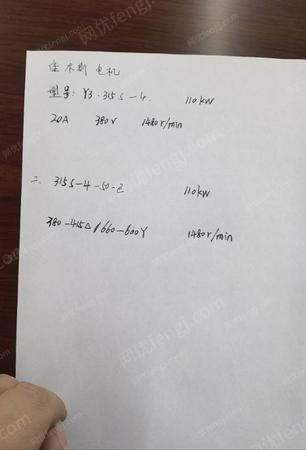 佳木斯 电机
型号: Y3·315S-4. 110kW
20A 380V 1480r/min
二. 315S-4-50-2 110kW
380-415△/660-600Y 1480r/min